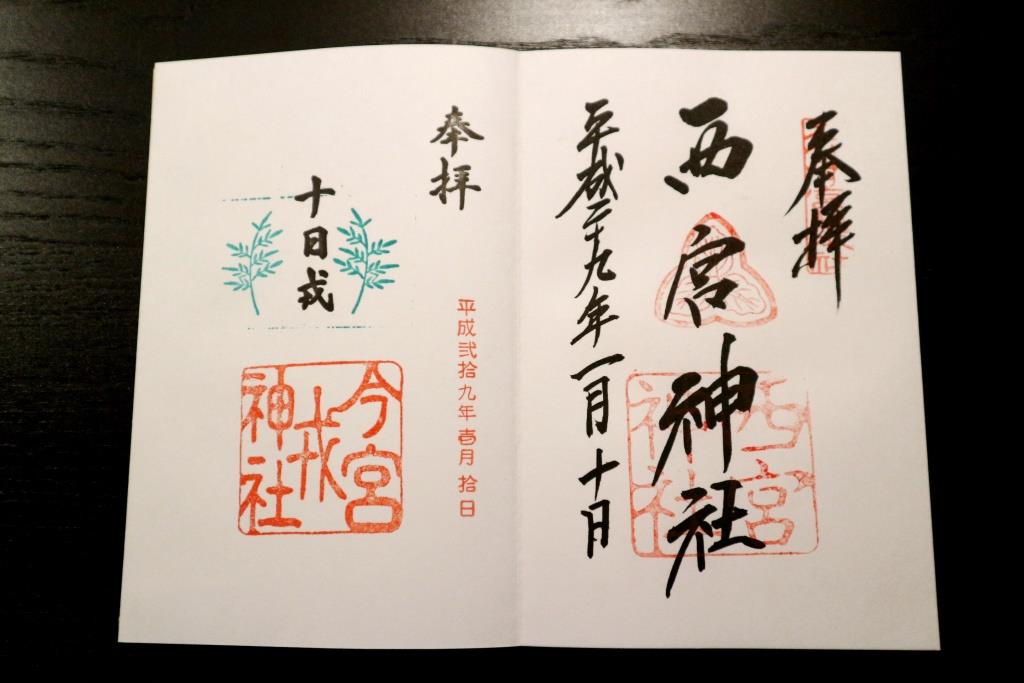 奉拝
西宮神社
平成二十九年一月十日
西宮神社
奉拝
平成弐拾九年壱月拾日
十日戎
今宮戎神社